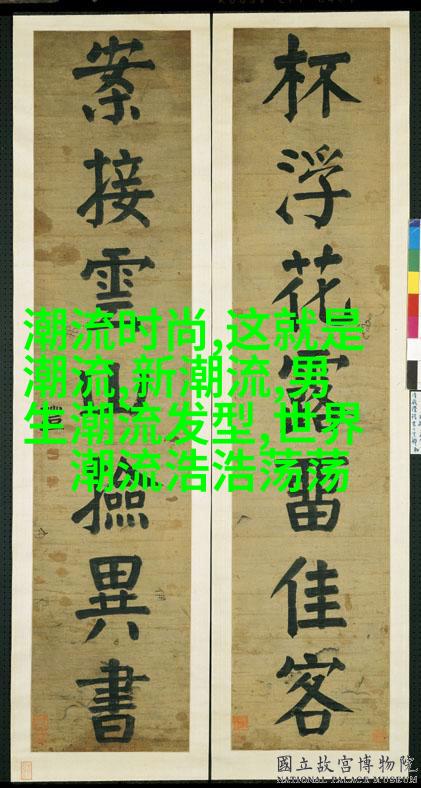 杯浮花露留佳客
案接雲山撿異書
潮流时尚,这就是
潮流,新潮流,男
生潮流发型,世界
潮流浩浩荡荡
國立故宮博物院
NATIONAL PALACE MUSEUM